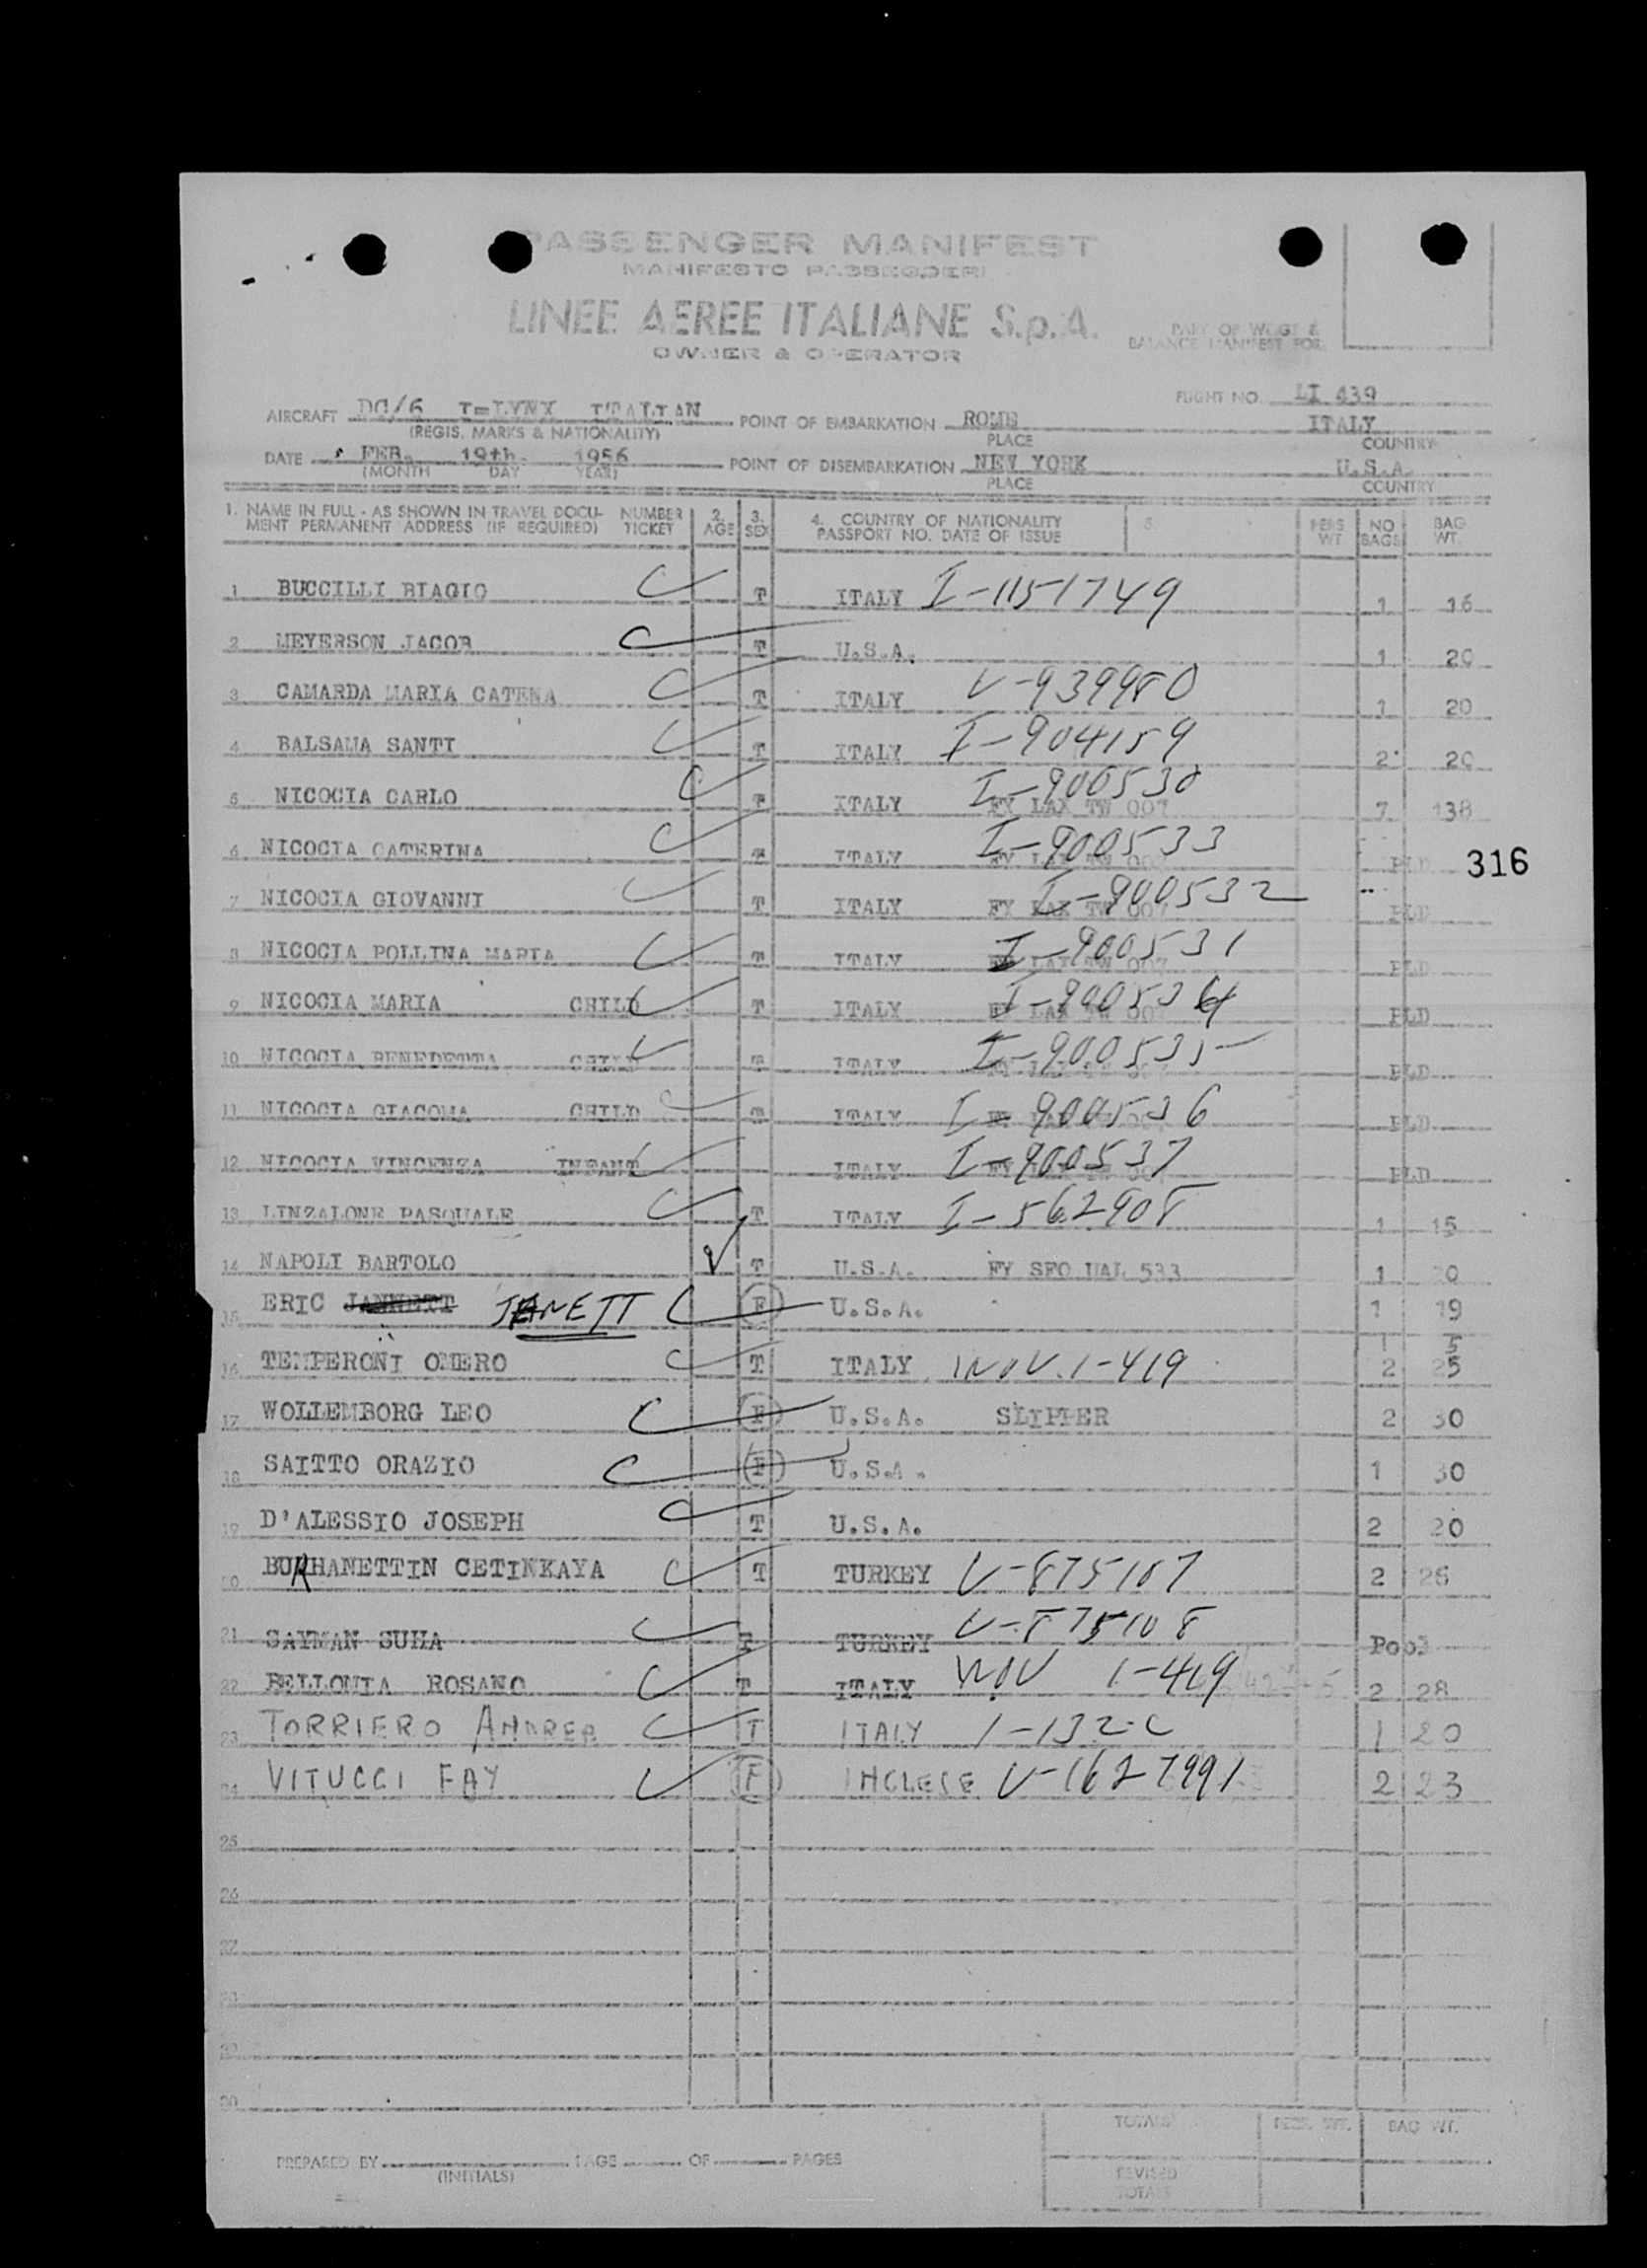 PASSENGER MANIFEST
MANIFESTO PASSEGGERI
LINEE AEREE ITALIANE S.p.A.
OWNER & OPERATOR
PART OF WEIGT &
BALANCE MANIFEST FOR
FLIGHT NO. LI 439
AIRCRAFT DC/6 I-LYNX ITALIAN POINT OF EMBARKATION ROME ITALY
(REGIS. MARKS & NATIONALITY) PLACE COUNTRY
DATE FEB. 19th. 1956 POINT OF DISEMBARKATION NEW YORK U.S.A.
(MONTH DAY YEAR) PLACE COUNTRY
1. NAME IN FULL - AS SHOWN IN TRAVEL DOCU- NUMBER 2. 3. 4. COUNTRY OF NATIONALITY 5. PERS NO BAG
MENT PERMANENT ADDRESS (IF REQUIRED) TICKET AGE SEX PASSPORT NO. DATE OF ISSUE WT BAGS WT.
1 BUCCILLI BIAGIO T ITALY I-1151749 1 16
2 MEYERSON JACOB T U.S.A. 1 20
3 CAMARDA MARIA CATENA T ITALY V-939980 1 20
4 BALSAMA SANTI T ITALY I-904159 2 20
5 NICOCIA CARLO T ITALY I-900530 FY LAX TW 007 7 138
6 NICOCIA CATERINA T ITALY I-900533 FY LAX TW 007 PLD
316
7 NICOCIA GIOVANNI T ITALY I-900532 FY LAX TW 007 PLD
8 NICOCIA POLLINA MARIA T ITALY I-900531 LAX TW 007 PLD
9 NICOCIA MARIA CHILD T ITALY I-900534 PLD
10 NICOCIA BENEDETTA CHILD T ITALY I-900535 PLD
11 NICOCIA GIACOMA CHILD T ITALY I-900536 PLD
12 NICOCIA VINCENZA INFANT ITALY I-900537 PLD
13 LINZALONE PASQUALE T ITALY I-562908 1 15
14 NAPOLI BARTOLO T U.S.A. FY SFO UAL 533 1 20
15 ERIC JANNETT JANETT F U.S.A. 1 19
1 5
16 TEMPERONI OMERO T ITALY WOV. 1-419 2 25
17 WOLLEMBORG LEO F U.S.A. SLIPPER 2 30
18 SAITTO ORAZIO F U.S.A. 1 30
19 D'ALESSIO JOSEPH T U.S.A. 2 20
20 BURHANETTIN CETINKAYA T TURKEY V-875107 2 26
21 SAYMAN SUHA T TURKEY V-875108 Pool
22 BELLOMIA ROSANO T ITALY WOV 1-419 2 28
23 TORRIERO ANDREA T ITALY 1-132-C 1 20
24 VITUCCI FAY F INGLESE V-1627991 2 23
25
26
27
28
29
30
TOTALS PERS. WT. BAG WT.
PREPARED BY PAGE OF PAGES
(INITIALS)
REVISED
TOTALS